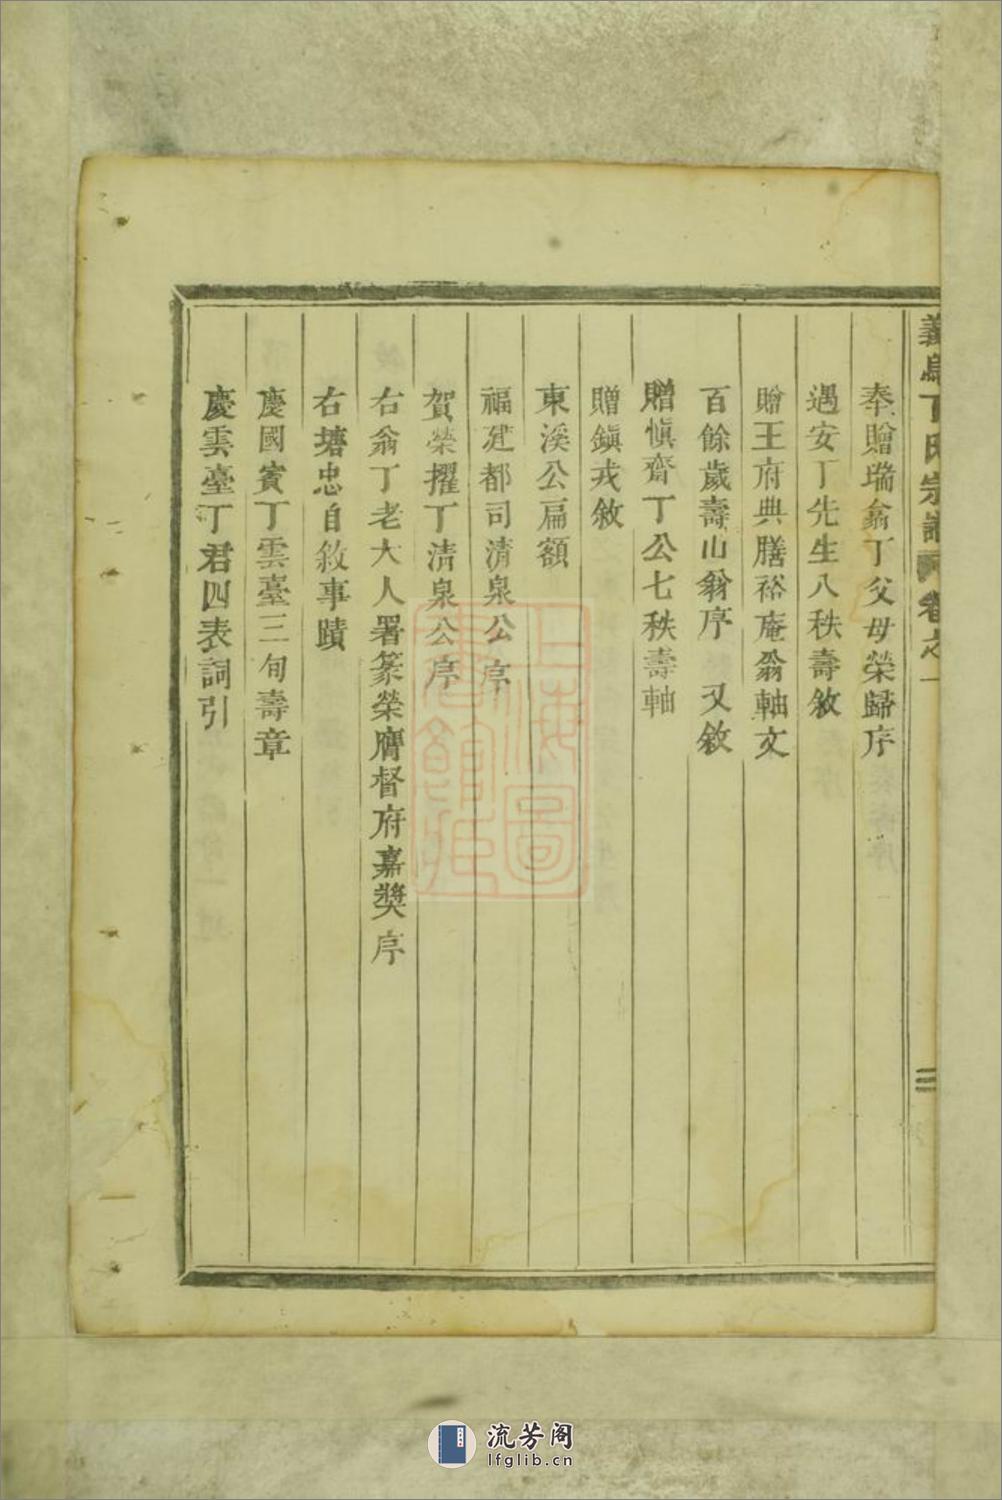 義烏丁氏宗譜 卷之一
三
奉贈瑞翁丁父母榮歸序
遇安丁先生八秩壽敘
贈王府典膳裕庵翁軸文
百餘歲壽山翁序 又敘
贈愼齋丁公七秩壽軸
贈鎭戎敘
東溪公扁額
福建都司清泉公序
賀榮擢丁清泉公序
右翁丁老大人署篆榮膺督府嘉奬序
右塘忠自敘事蹟
慶國賓丁雲臺三旬壽章
慶雲臺丁君四表詞引
上海圖書館藏
流芳阁
lfglib.cn